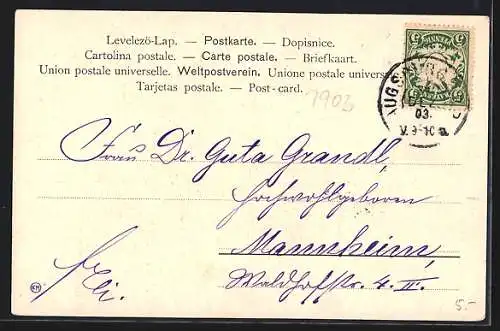 Levelezö-Lap. — Postkarte. — Dopisnice.
Cartolina postale. — Carte postale. — Briefkaart.
Union postale universelle. Weltpostverein. Unione postale universa
Tarjetas postale. — Post-card.
1903
BAYERN
5 5
AUGS
03.
V. 9-10
Frau Dr. Guta Grandl,
Hochwohlgeboren
Mannheim,
Waldhofstr. 4. II.
frei.
KM
5.-